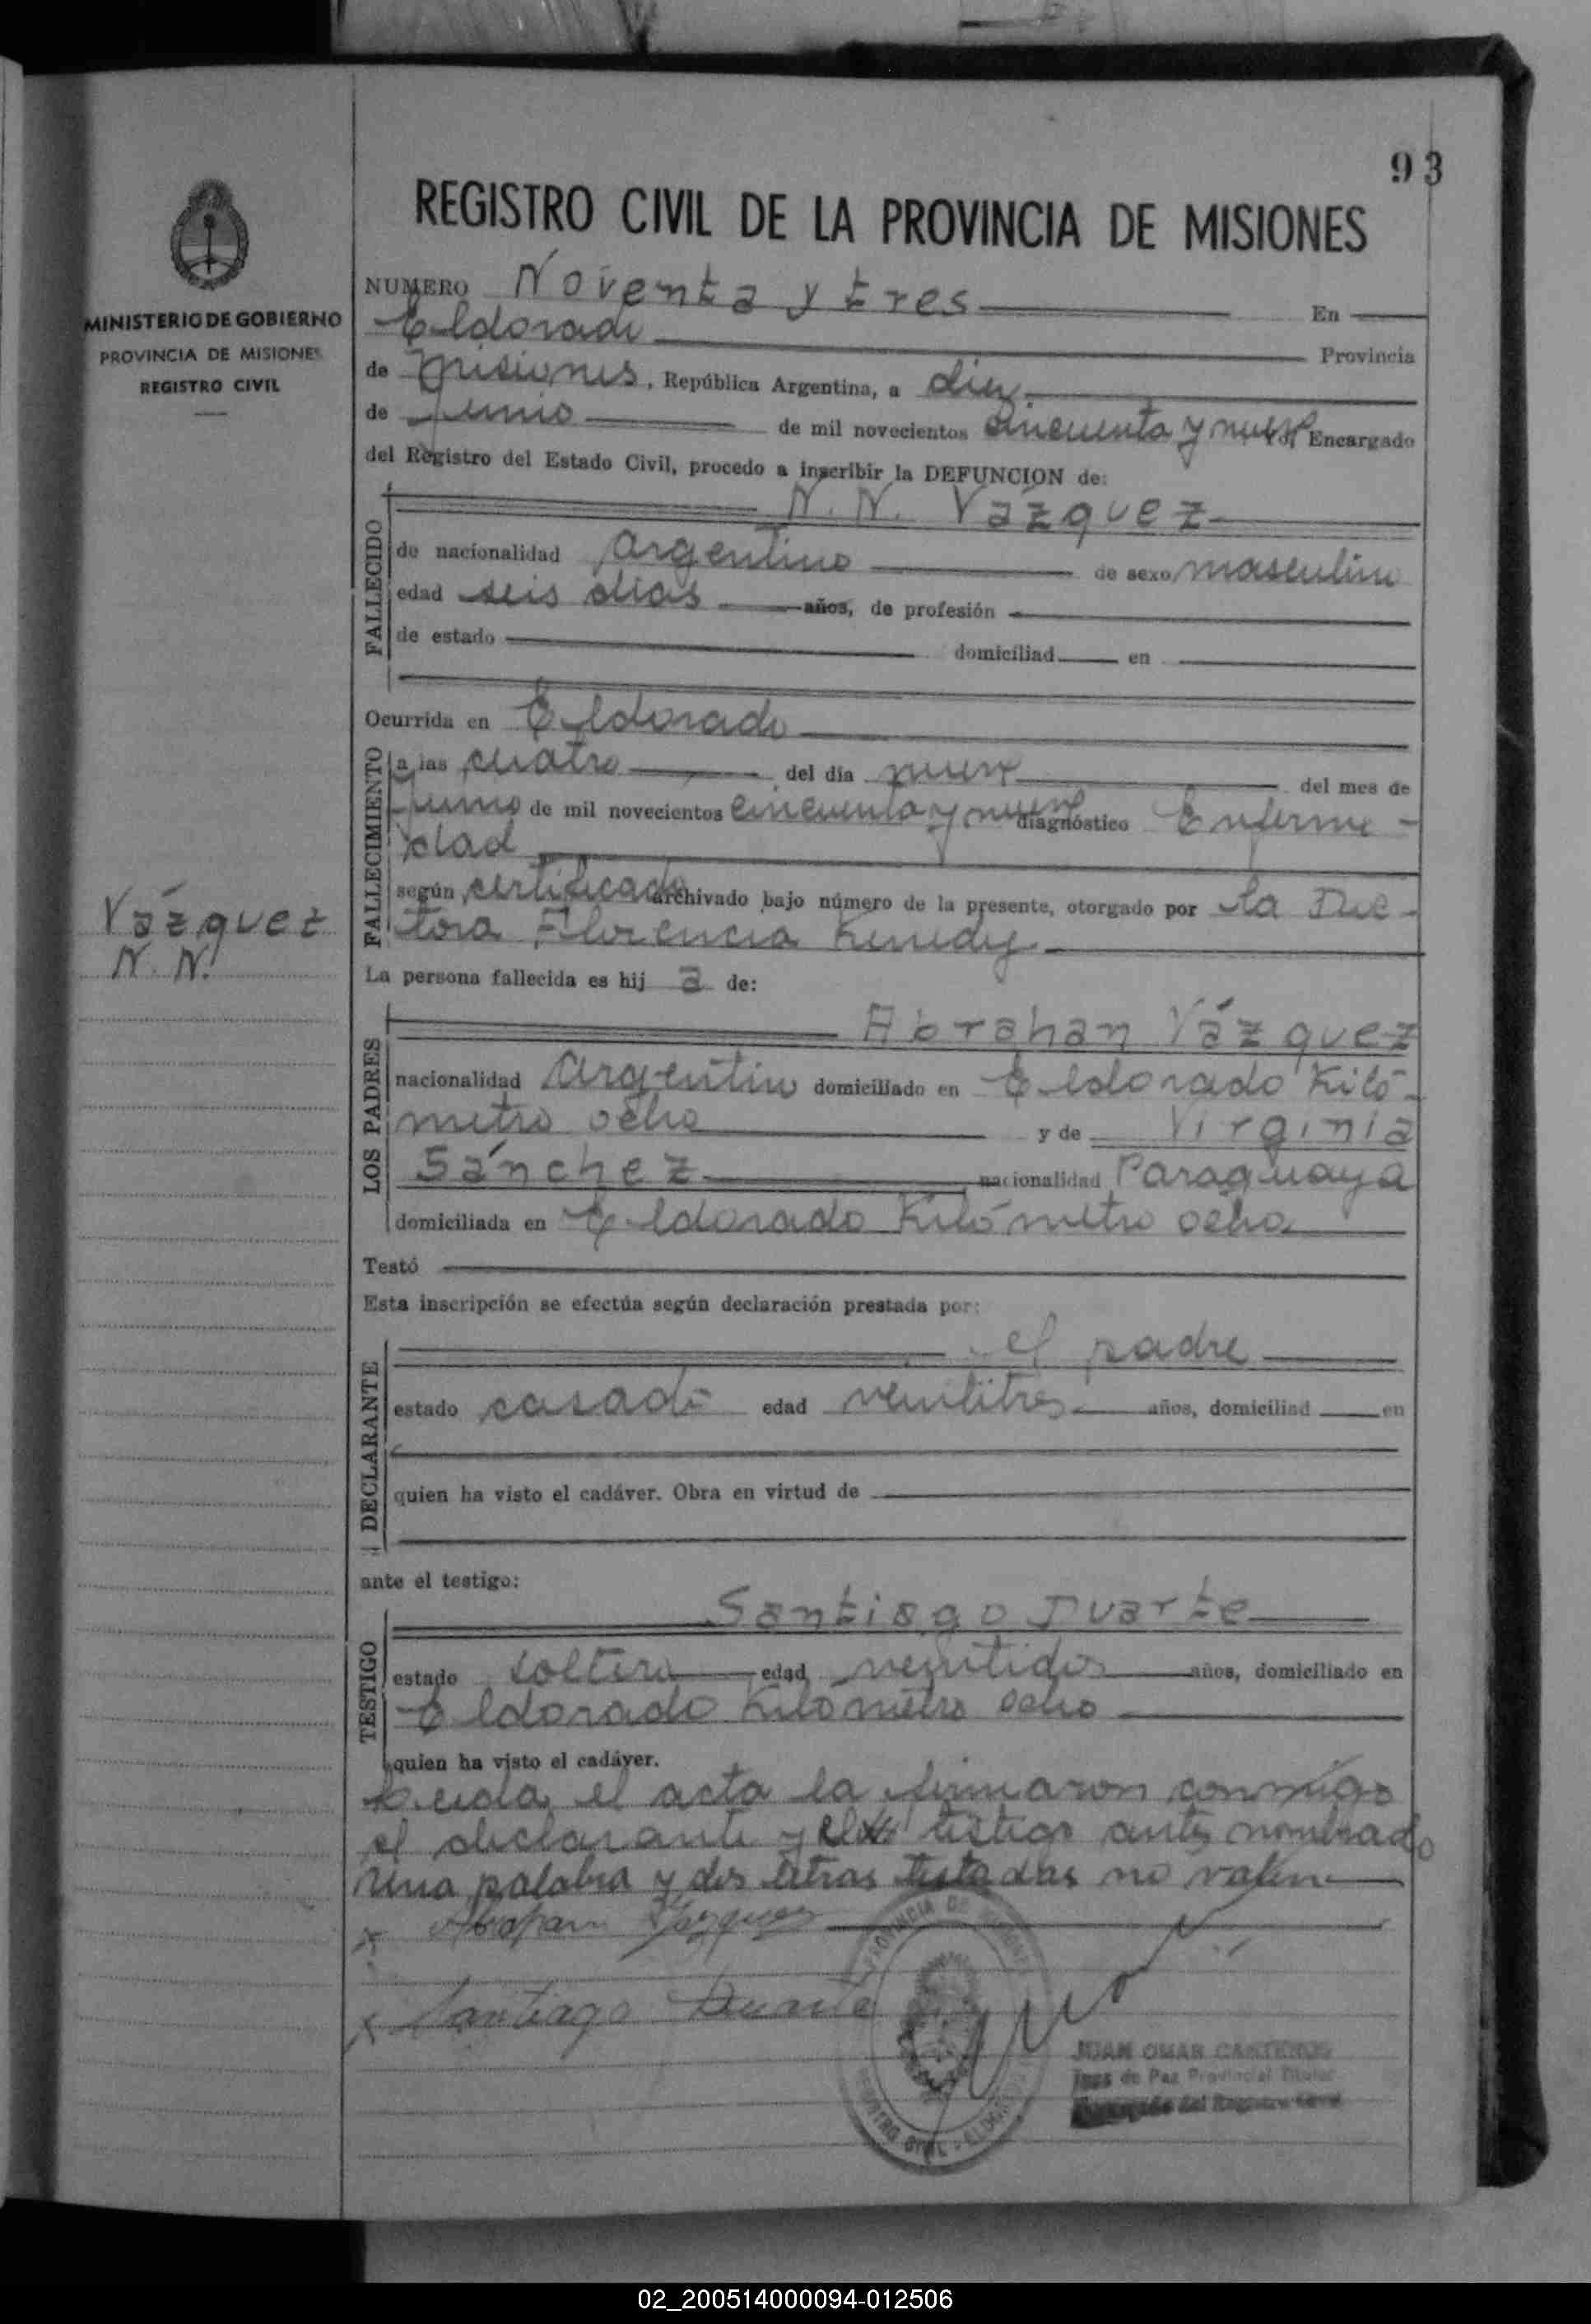 93
REGISTRO CIVIL DE LA PROVINCIA DE MISIONES
MINISTERIO DE GOBIERNO
PROVINCIA DE MISIONES
REGISTRO CIVIL
NUMERO Noventa y tres En
Eldorado Provincia
de Misiones, República Argentina, a diez
de Junio de mil novecientos cincuenta y nueve Encargado
del Registro del Estado Civil, procedo a inscribir la DEFUNCION de:
N. N. Vázquez
FALLECIDO
de nacionalidad argentino de sexo masculino
edad seis dias años, de profesión
de estado domiciliad en
Ocurrida en Eldorado
FALLECIMIENTO
a las cuatro del día nueve del mes de
Junio de mil novecientos cincuenta y nueve diagnóstico Enferme-
dad
según certificado archivado bajo número de la presente, otorgado por la Doc-
tora Florencia Kenedy
Vázquez
N. N.
La persona fallecida es hij a de:
LOS PADRES
Abrahan Vázquez
nacionalidad Argentino domiciliado en Eldorado Kiló-
metro ocho y de Virginia
Sánchez nacionalidad Paraguaya
domiciliada en Eldorado Kilómetro ocho
Testó
Esta inscripción se efectúa según declaración prestada por:
DECLARANTE
el padre
estado casado edad veintitres años, domiciliad en
quien ha visto el cadáver. Obra en virtud de
ante el testigo:
TESTIGO
Santiago Duarte
estado soltero edad veintidos años, domiciliado en
Eldorado Kilómetro ocho
quien ha visto el cadáver.
Leida el acta la firmaron conmigo
el declarante y el testigo antes nombrado
una palabra y dos letras testadas no valen
x Abraham Vazquez
x Santiago Duarte
PROVINCIA DE MISIONES
REGISTRO CIVIL - ELDORADO
JUAN OMAR
Juez de Paz Provincial Titular
Encargado del Registro Civil
02_200514000094-012506